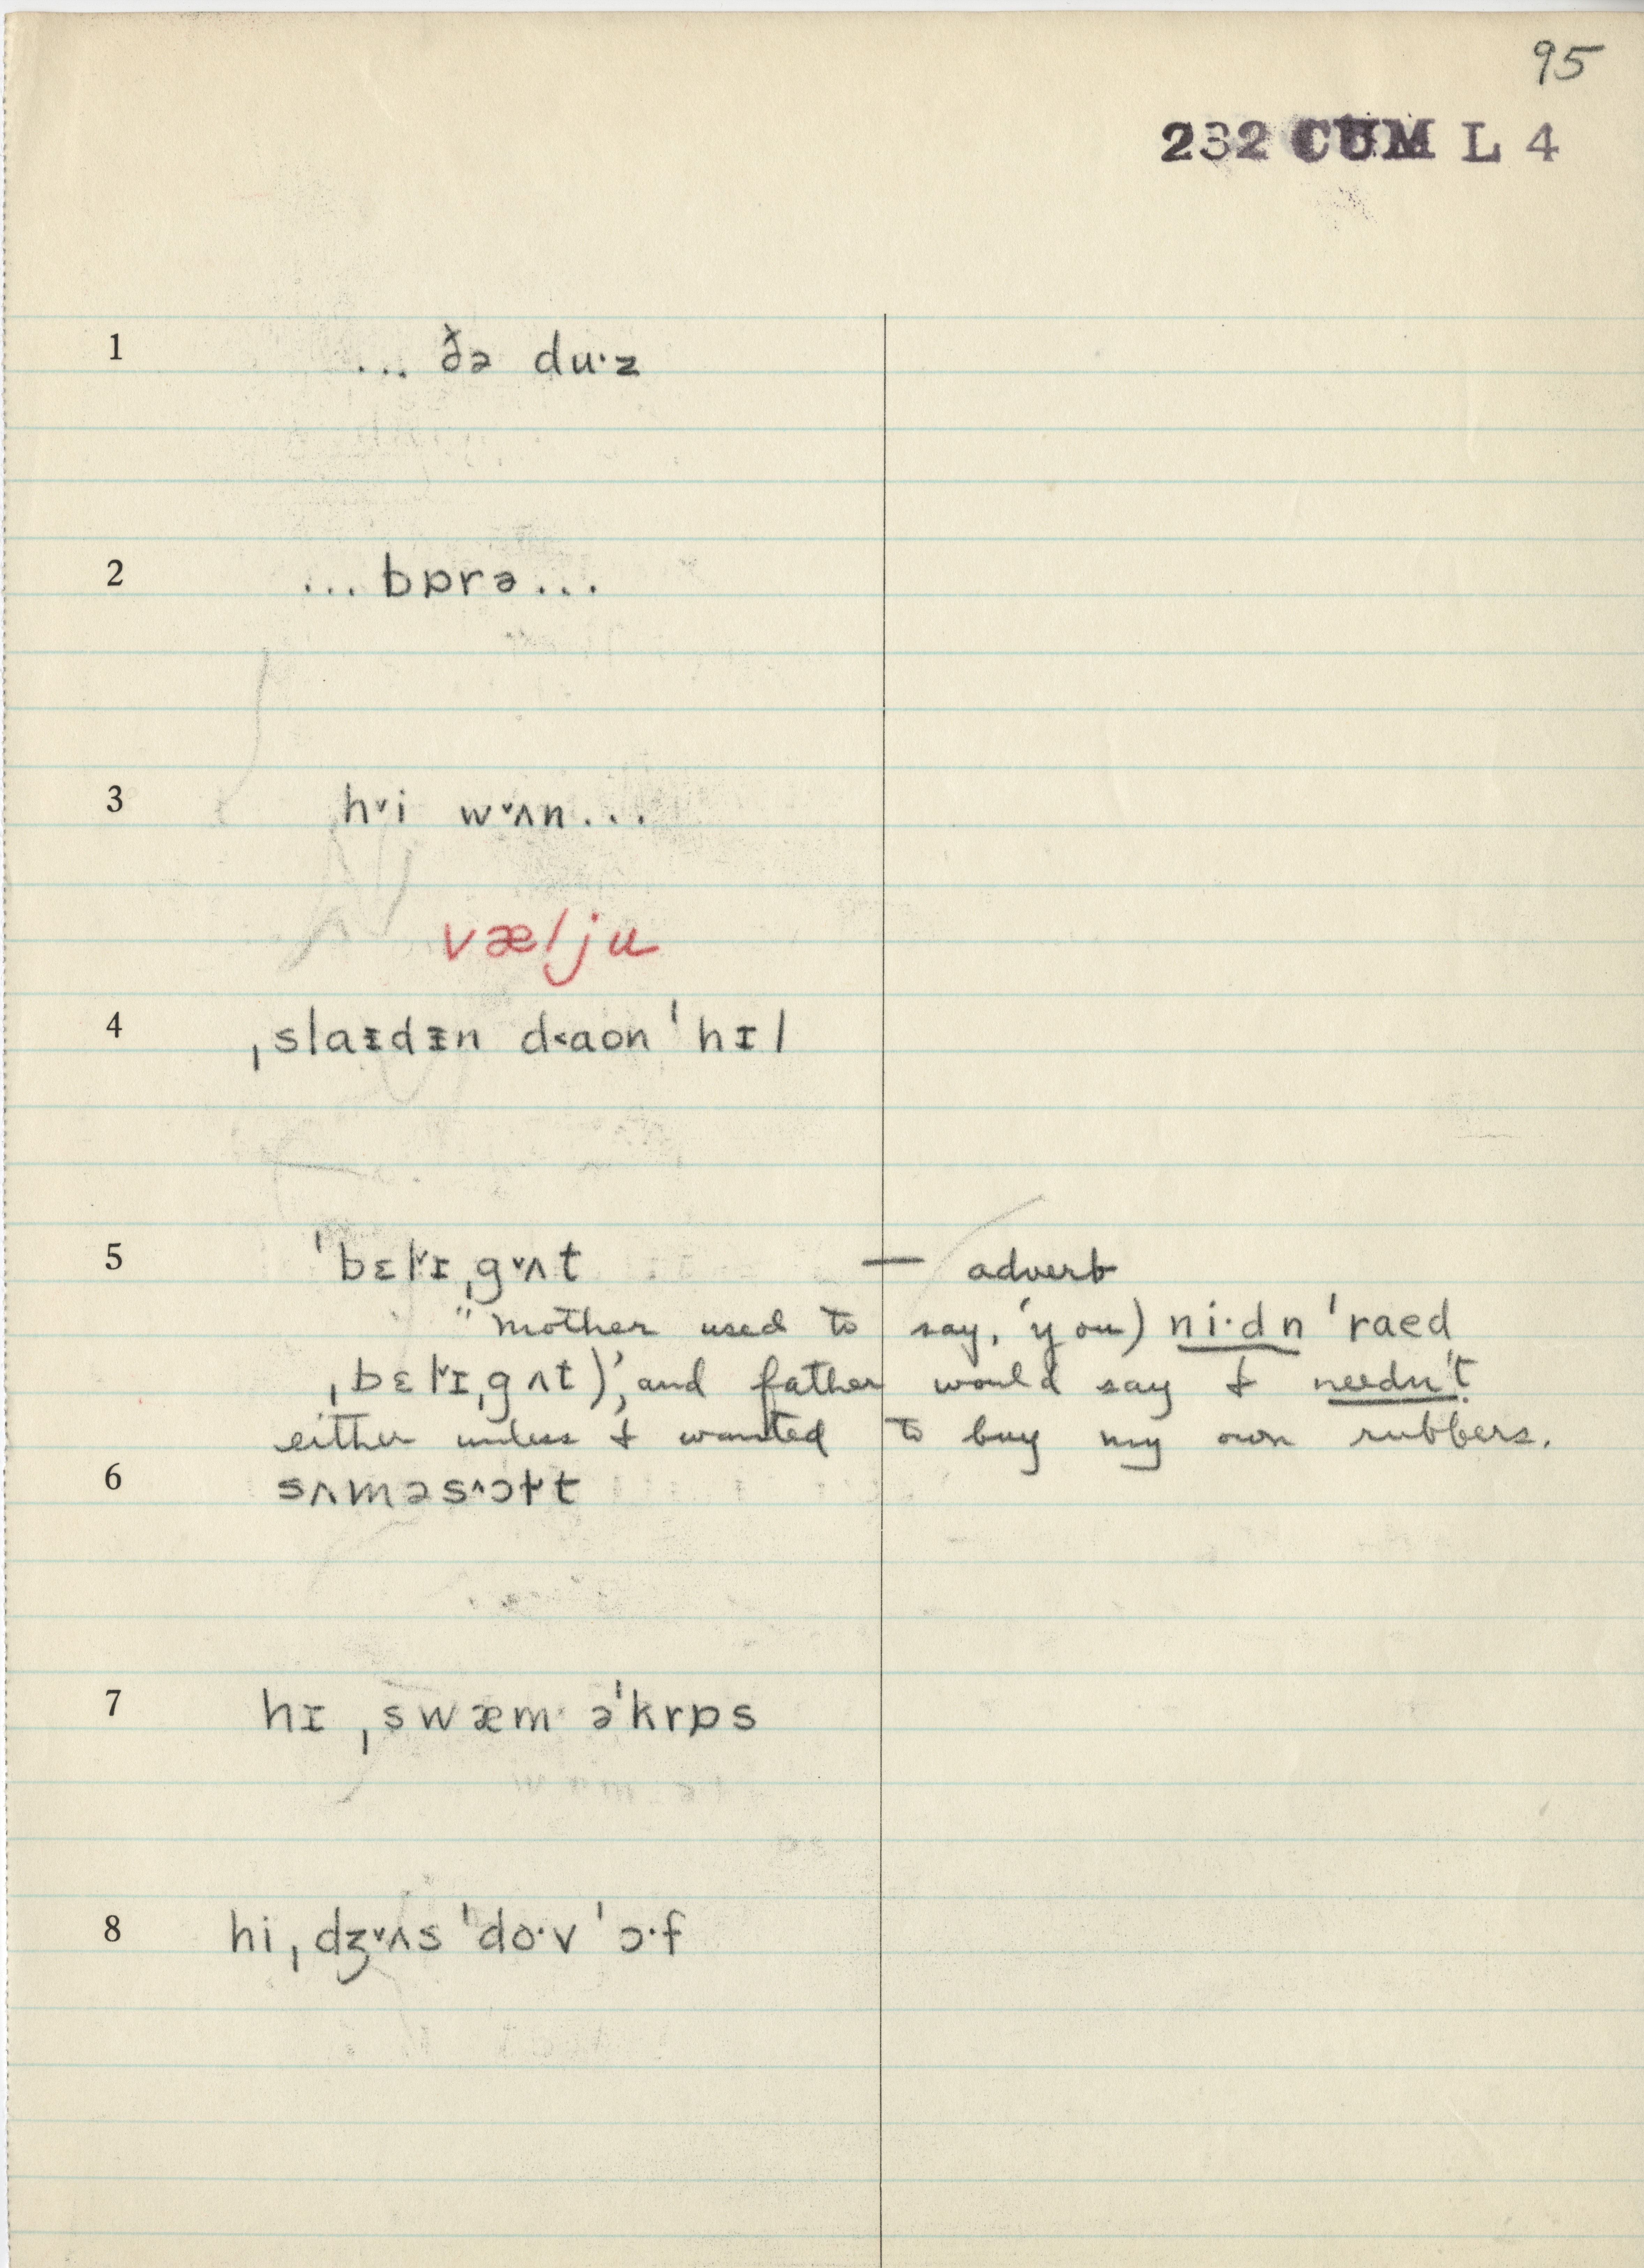 95
232 CUM L 4
1 ... ðə du·z
2 ... bɒrə...
3 hᵛi wᵛʌn...
vælju
4 ˌslaɪdɪn d˂aon ˈhɪl
5 ˈbɛlᵛɪˌgᵛʌt — adverb
"mother used to say, 'you) ni·dn ˈraed
ˌbɛlᵛɪˌgʌt)', and father would say I needn't
either unless I wanted to buy my own rubbers.
6 sʌməsˆɔɫt
7 hɪ ˌswæm· əˈkrɒs
8 hiˌdʒᵛʌs ˈdo·v ˈɔ·f